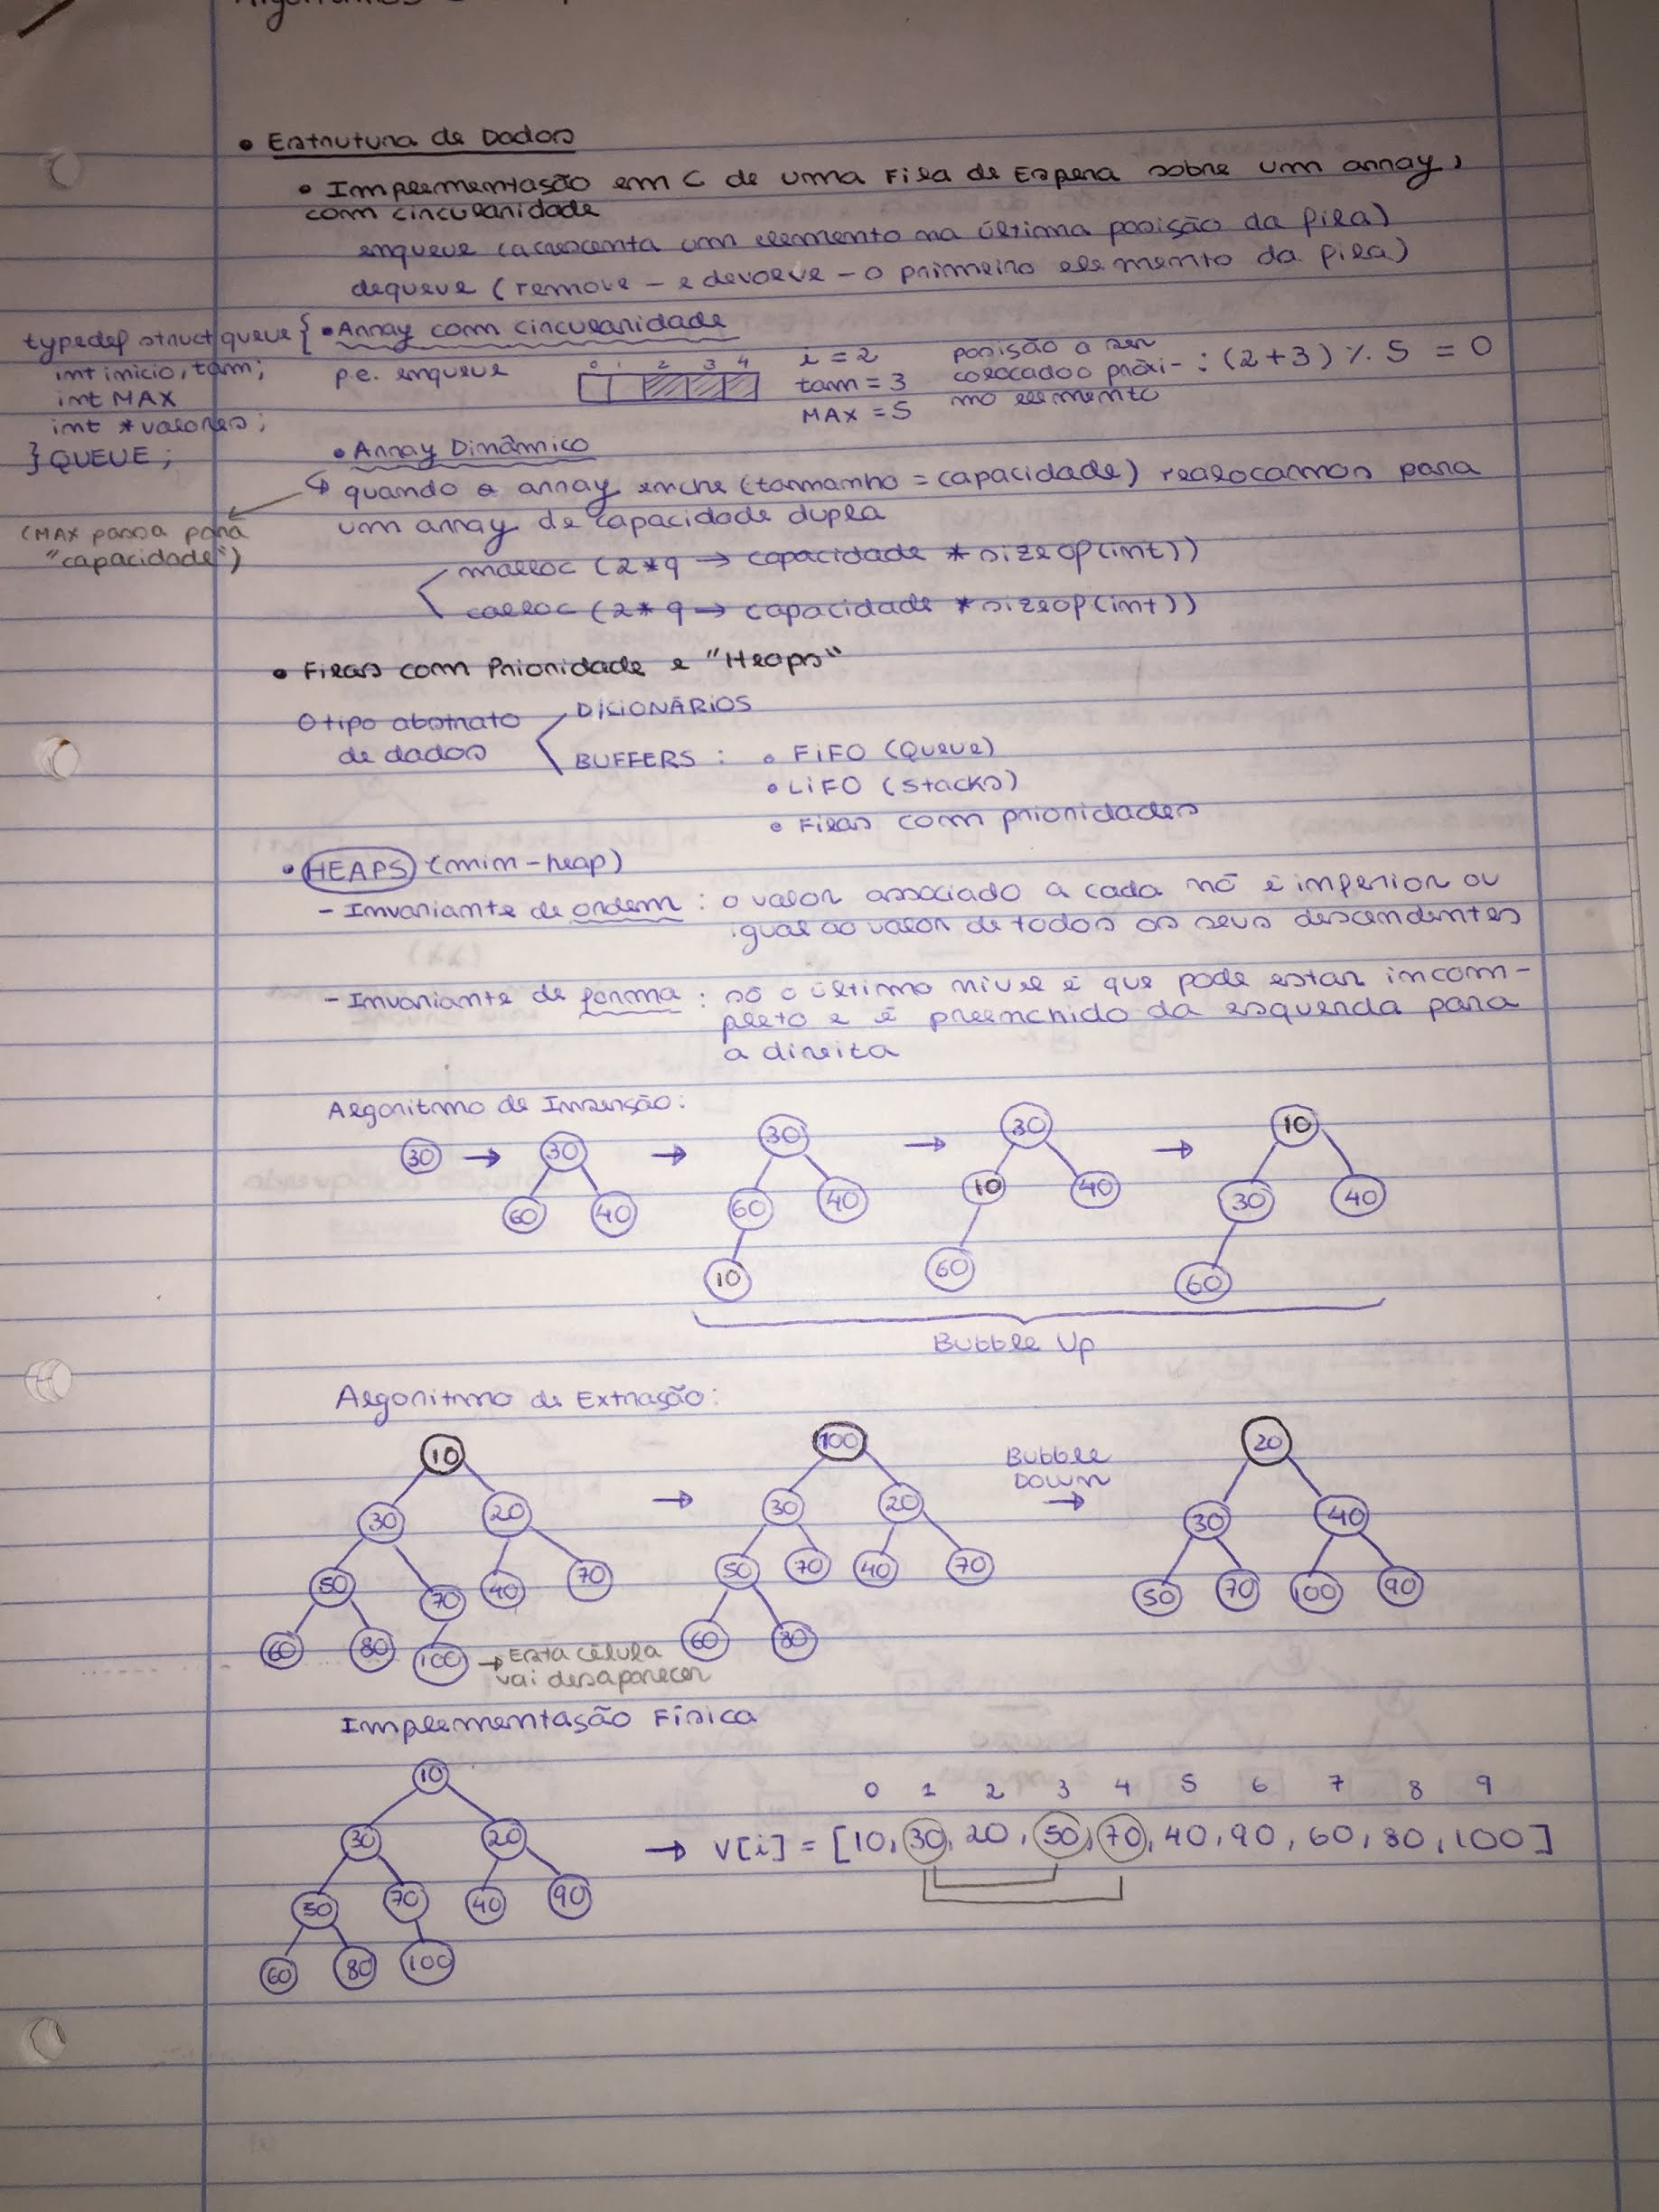 • Estrutura de Dados
• Implementação em C de uma Fila de Espera sobre um array,
com circularidade
enqueue (acrescenta um elemento na última posição da fila)
dequeue (remove - e devolve - o primeiro elemento da fila)
typedef struct queue {
int inicio, tam;
int MAX
int *valores;
} QUEUE;
• Array com circularidade
p.e. enqueue
0 1 2 3 4
i = 2
tam = 3
MAX = 5
posição a ser
colocado o próxi-
mo elemento
: (2+3) % 5 = 0
• Array Dinâmico
↳ quando o array enche (tamanho = capacidade) realocamos para
um array de capacidade dupla
(MAX passa para
"capacidade")
malloc (2*q → capacidade * sizeof(int))
calloc (2* q → capacidade * sizeof(int))
• Filas com Prioridade e "Heaps"
O tipo abstrato
de dados
DICIONÁRIOS
BUFFERS : • FiFO (Queue)
• LiFO (Stacks)
• Filas com prioridades
• HEAPS (min-heap)
- Invariante de ordem : o valor associado a cada nó é inferior ou
igual ao valor de todos os seus descendentes
- Invariante de forma : só o último nível é que pode estar incom-
pleto e é preenchido da esquerda para
a direita
Algoritmo de Inserção:
30 → 30 → 30 → 30 → 10
60 40 60 40 10 40 30 40
10 60 60
Bubble Up
Algoritmo de Extração:
10 → 100 Bubble Down → 20
30 20 30 20 30 40
50 70 40 70 50 70 40 70 50 70 100 90
60 80 100 → Esta célula 60 80
vai desaparecer
Implementação Física
10
30 20
50 70 40 90
60 80 100
0 1 2 3 4 5 6 7 8 9
→ V[i] = [10, 30, 20, 50, 70, 40, 90, 60, 80, 100]